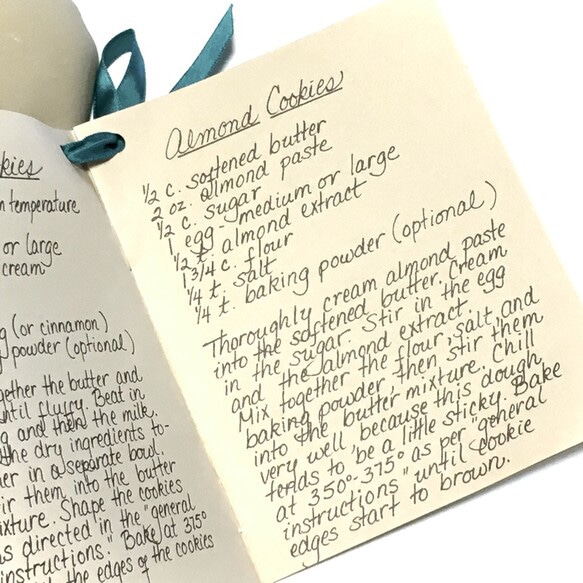 kies
n temperature
or large
cream
g (or cinnamon)
powder (optional)
gether the butter and
until fluffy. Beat in
g and then the milk.
the dry ingredients to-
her in a separate bowl.
ir them into the butter
ixture. Shape the cookies
s directed in the "general
instructions." Bake at 375°
the edges of the cookies
Almond Cookies
1/2 c. softened butter
2 oz. almond paste
1/2 c. sugar
1 egg - medium or large
1/2 t. almond extract
1 3/4 c. flour
1/4 t. salt
1/4 t. baking powder (optional)
Thoroughly cream almond paste
into the softened butter. Cream
in the sugar. Stir in the egg
and the almond extract.
Mix together the flour, salt, and
baking powder, then stir them
into the butter mixture. Chill
very well because this dough
tends to be a little sticky. Bake
at 350°-375° as per "general
instructions" until cookie
edges start to brown.